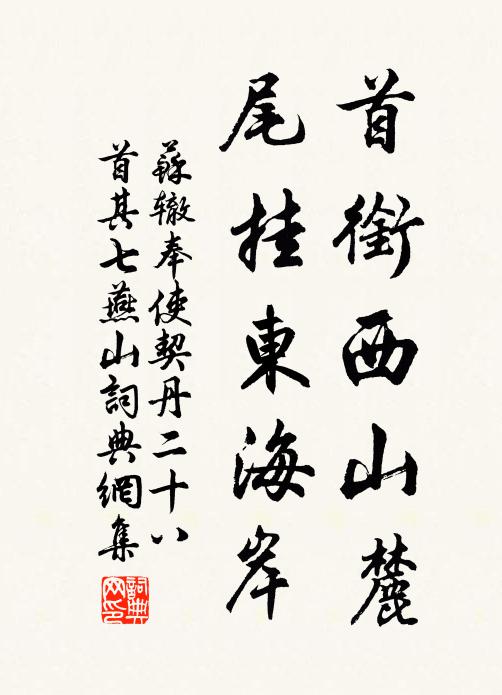 首銜西山麓
尾挂東海岸
蘇辙奉使契丹二十八
首其七燕山詞典網集
詞典网印